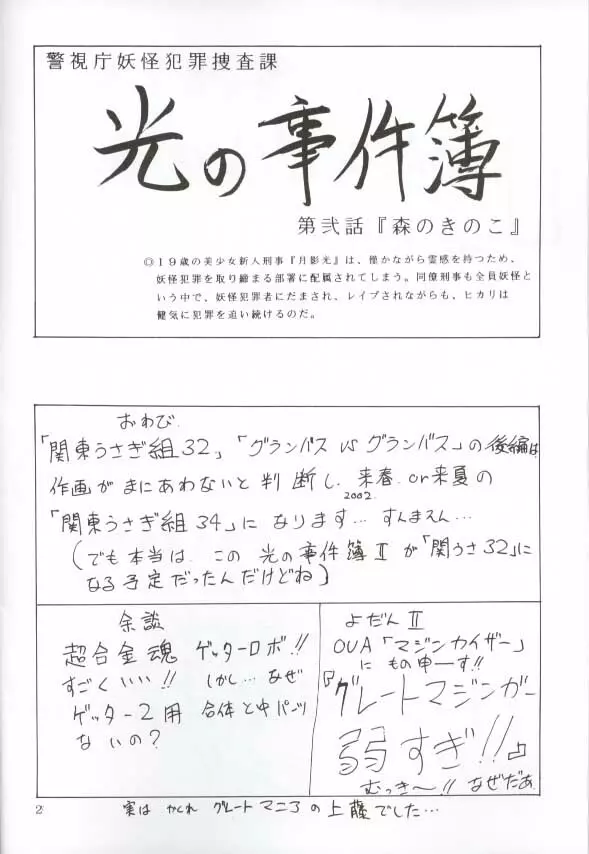 警視庁妖怪犯罪捜査課
光の事件簿
第弐話『森のきのこ』
◎19歳の美少女新人刑事『月影光』は、僅かながら霊感を持つため、
妖怪犯罪を取り締まる部署に配属されてしまう。同僚刑事も全員妖怪と
いう中で、妖怪犯罪者にだまされ、レイプされながらも、ヒカリは
健気に犯罪を追い続けるのだ。
おわび
「関東うさぎ組32」「グランバス VS グランバス」の後編は
作画がまにあわないと判断し、来春 or 来夏の
2002.
「関東うさぎ組34」になります… すんまえん…
(でも本当は、この 光の事件簿Ⅱ が「関うさ32」に
なる予定だったんだけどね)
余談
超合金魂 ゲッターロボ!!
すごくいい!! しかし… なぜ
ゲッター2用 合体と中パンツ
ないの?
よだんⅡ
OVA「マジンカイザー」
に もの申ーす!!
『グレートマジンガー
弱すぎ!!』
むっき〜!! なぜだぁ
実は かくれ グレートマニアの上藤でした…
2